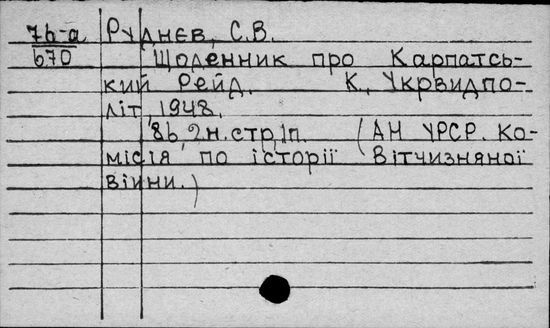 7б-а Руднєв, С.В.
670 Щоденник про Карпатсь-
кий рейд. К., Укрвидпо-
літ, 1948.
86, 2н. стр, 1п. (АН УРСР. Ко-
місія по історії Вітчизняної
війни.)